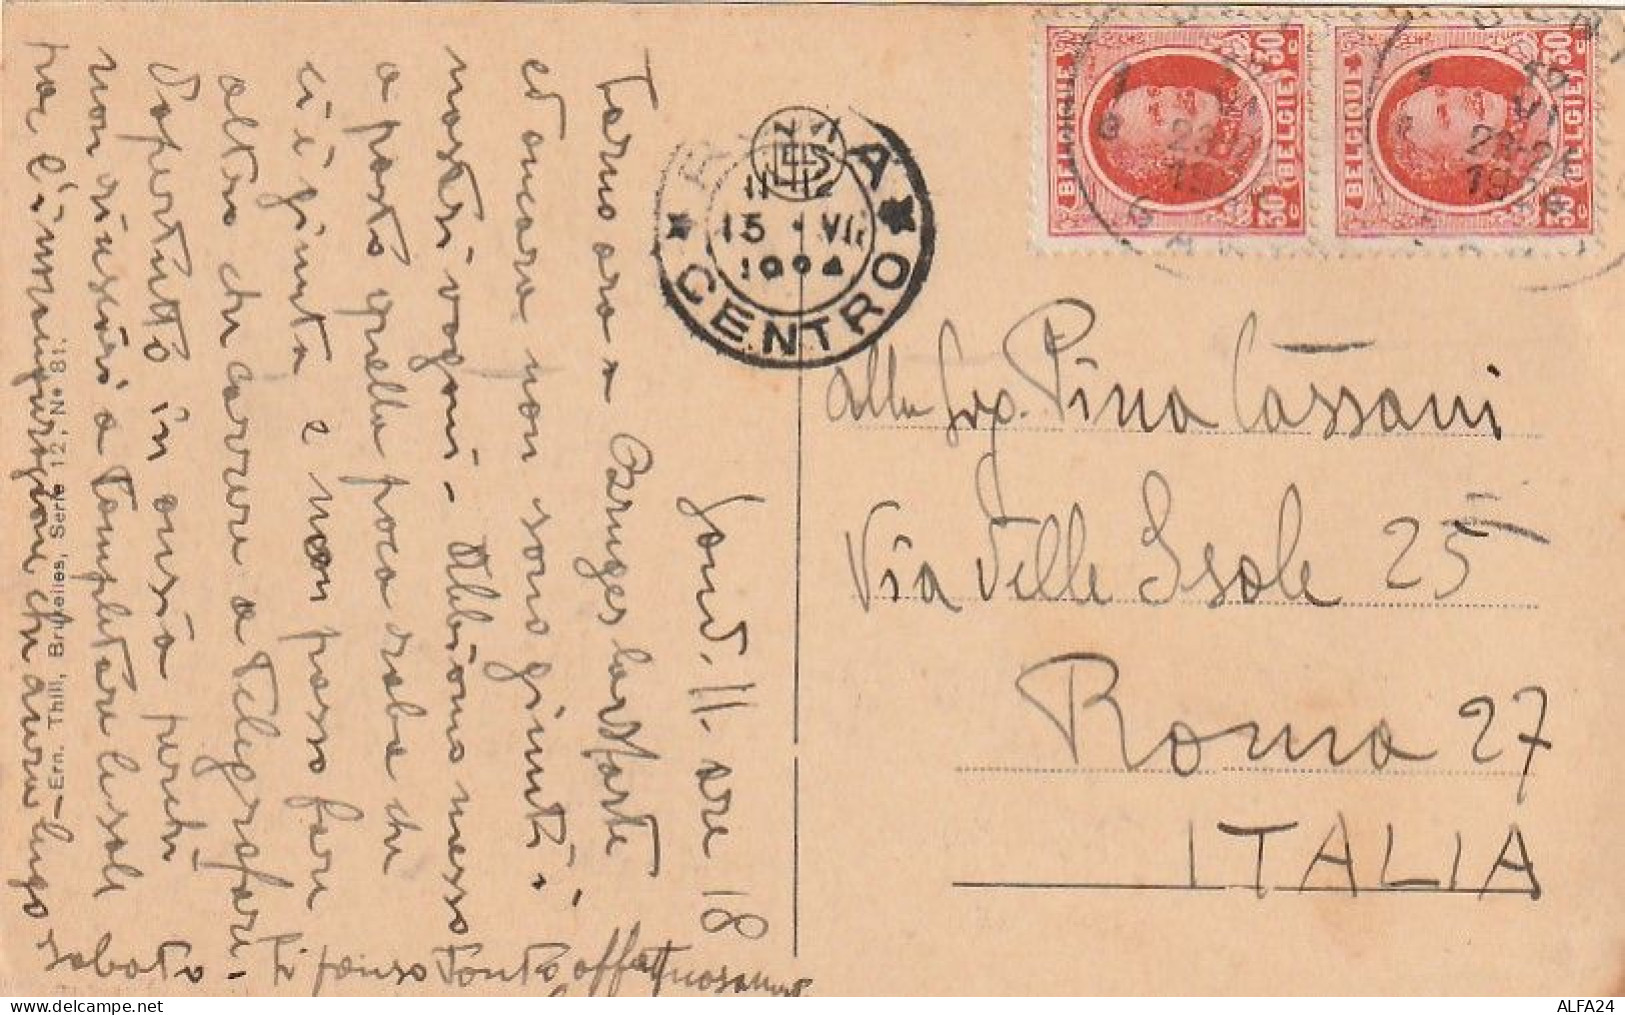 Gand. 11. ore 18
Tarno ora Bruges la Morte
ed ancora non sono giunti i
nostri vagoni. Abbiamo messo
a posto quella poca roba che
ci è giunta e non posso fare
altro che correre a telegrafare
dapertutto in ansia perchè
non riuscirò a completare le sale
per l'inaugurazione che avrà luogo
sabato. Ti penso tanto affettuosamente
Ern. Thill, Bruxelles, Serie 12, No 81.
BELGIQUE 30 c (BELGIE) 30 c
BELGIQUE 30 c (BELGIE) 30 c
ROMA CENTRO
11-12
15 VII
Alla Sig. Pina Cassani
Via delle Isole 25
Roma 27
ITALIA
ALFA24